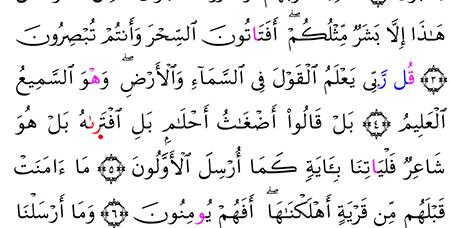 هَٰذَا إِلَّا بَشَرٌ مِّثْلُكُمْۖ أَفَتَاتُونَ ٱلسِّحْرَ وَأَنتُمْ تُبْصِرُونَ
﴿٣﴾ قُل رَّبِّي يَعْلَمُ ٱلْقَوْلَ فِي ٱلسَّمَآءِ وَٱلْأَرْضِۖ وَهْوَ ٱلسَّمِيعُ
ٱلْعَلِيمُ ﴿٤﴾ بَلْ قَالُوٓا۟ أَضْغَٰثُ أَحْلَٰمِۭ بَلِ ٱفْتَرَىٰهُ بَلْ هُوَ
شَاعِرٌ فَلْيَاتِنَا بِـَٔايَةٍ كَمَآ أُرْسِلَ ٱلْأَوَّلُونَ ﴿٥﴾ مَآ ءَامَنَتْ
قَبْلَهُم مِّن قَرْيَةٍ أَهْلَكْنَٰهَآۖ أَفَهُمْ يُومِنُونَ ﴿٦﴾ وَمَآ أَرْسَلْنَا